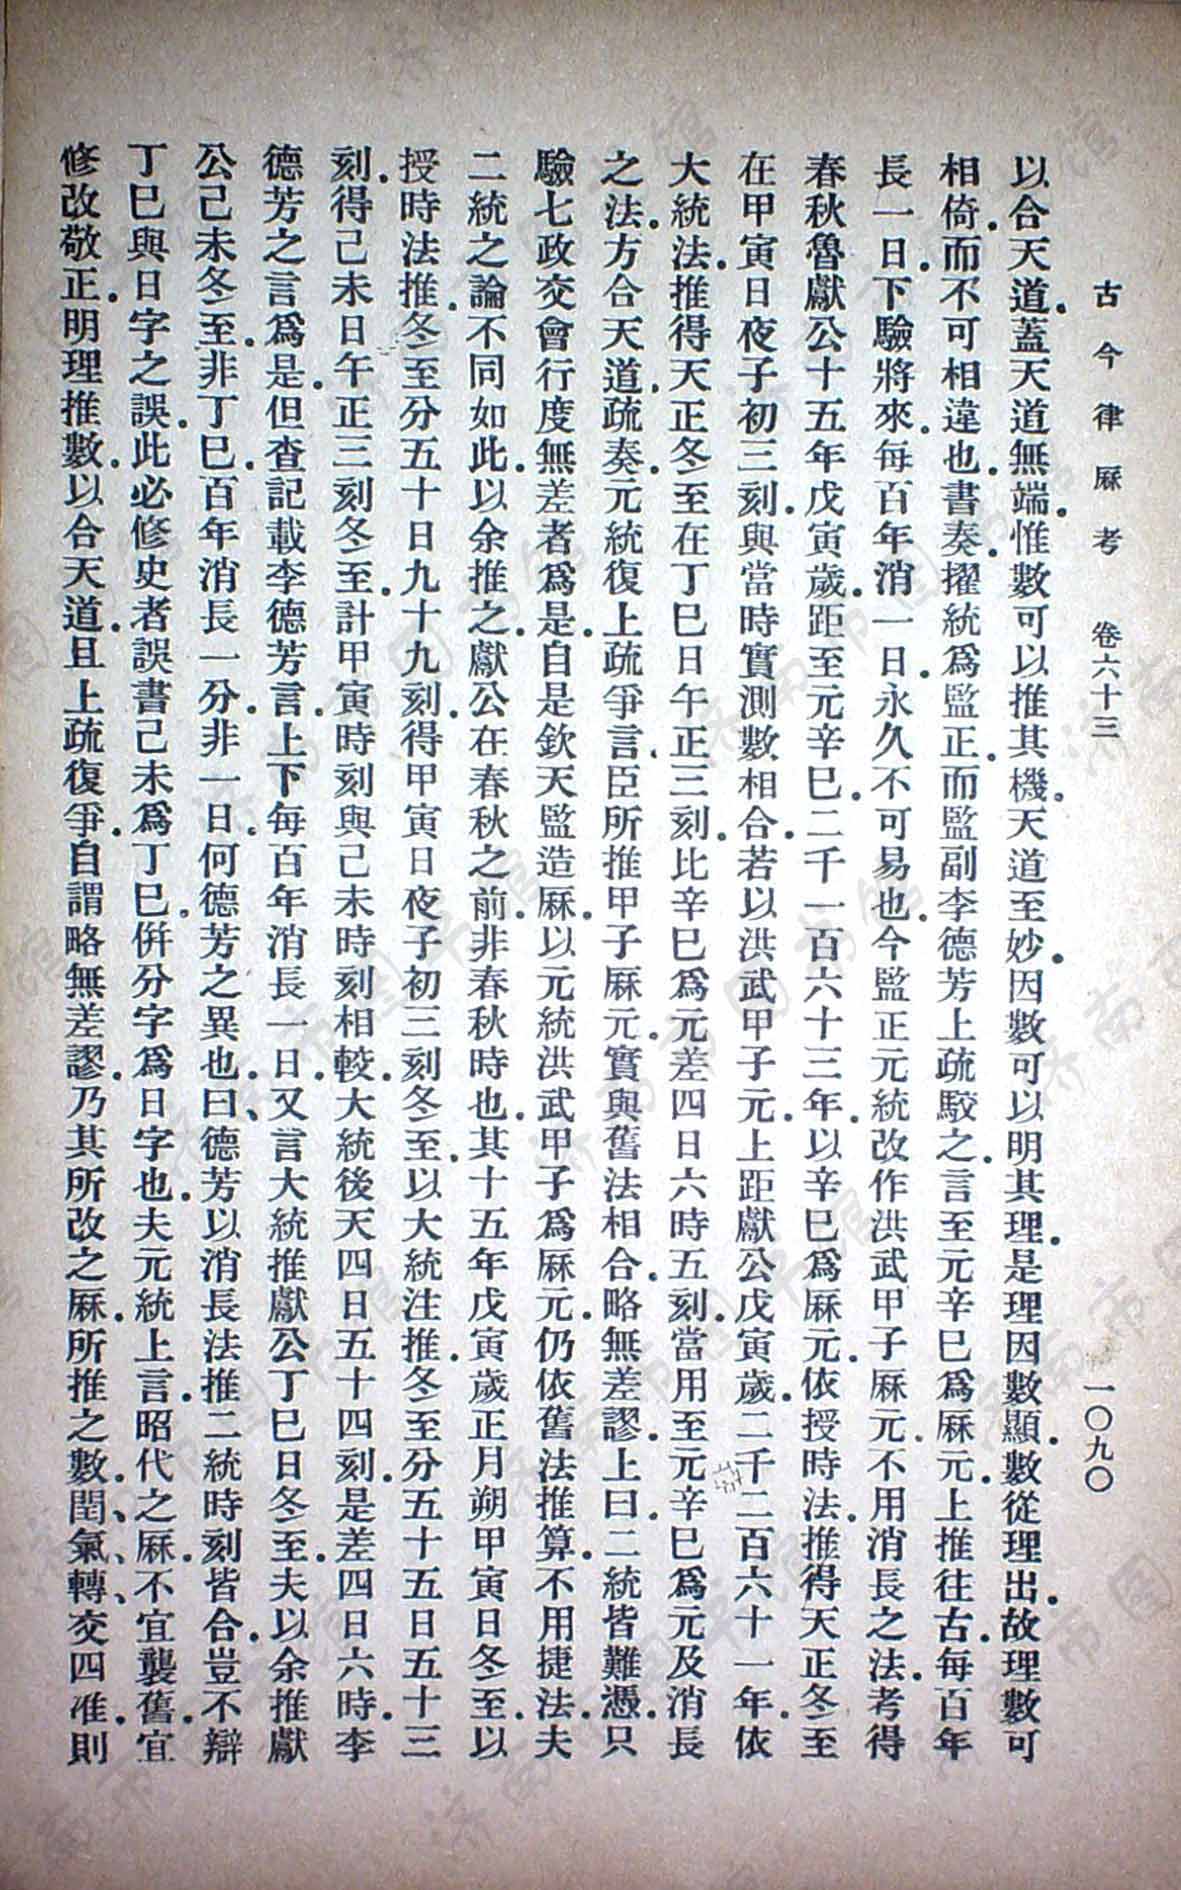 古今律厤考　卷六十三　一〇九〇
以合天道．蓋天道無端．惟數可以推其機．天道至妙．因數可以明其理．是理因數顯．數從理出．故理數可
相倚．而不可相違也．書奏．擢統爲監正．而監副李德芳上疏駮之．言至元辛巳爲厤元．上推往古．每百年
長一日．下驗將來．每百年消一日．永久不可易也．今監正元統改作洪武甲子厤元．不用消長之法．考得
春秋魯獻公十五年戊寅歲．距至元辛巳．二千一百六十三年．以辛巳爲厤元．依授時法．推得天正冬至
在甲寅日夜子初三刻．與當時實測數相合．若以洪武甲子元．上距獻公戊寅歲．二千二百六十一年．依
大統法．推得天正冬至在丁巳日午正三刻．比辛巳爲元差四日六時五刻．當用至元辛巳爲元及消長
之法．方合天道．疏奏．元統復上疏爭言．臣所推甲子厤元．實與舊法相合．略無差謬．上曰．二統皆難憑．只
驗七政交會行度無差者爲是．自是欽天監造厤．以元統洪武甲子爲厤元．仍依舊法推算．不用捷法．夫
二統之論不同如此．以余推之．獻公在春秋之前．非春秋時也．其十五年戊寅歲正月朔甲寅日冬至．以
授時法推．冬至分五十日九十九刻．得甲寅日夜子初三刻冬至．以大統注推．冬至分五十五日五十三
刻．得己未日午正三刻冬至．計甲寅時刻與己未時刻相較．大統後天四日五十四刻．是差四日六時．李
德芳之言爲是．但查記載李德芳言．上下每百年消長一日．又言大統推獻公丁巳日冬至．夫以余推獻
公己未冬至．非丁巳．百年消長一分．非一日．何德芳之異也．曰、德芳以消長法推二統時刻皆合．豈不辯
丁巳與日字之誤．此必修史者誤書己未爲丁巳．倂分字爲日字也．夫元統上言．昭代之厤．不宜襲舊．宜
修改敬正．明理推數．以合天道．且上疏復爭．自謂略無差謬．乃其所改之厤．所推之數．閏、氣、轉、交四准．則